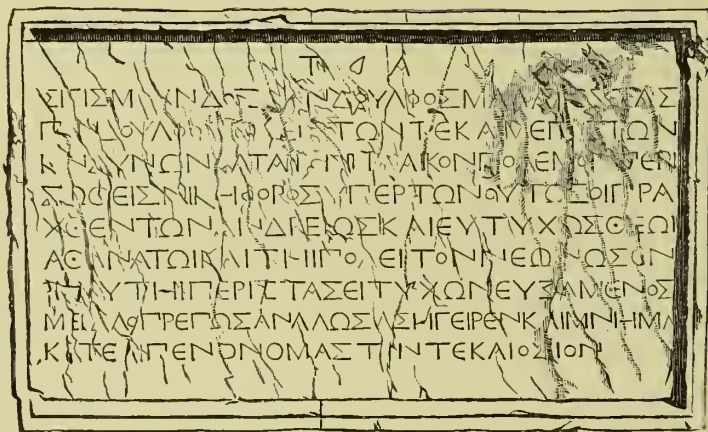 ΣΙΓΙΣΜ ΝΔΟΣ ΝΔΟΥΛΦΟΣΜΑΛΑ ΑΣ
Π ΝΔΟΥΛΦ ΤΩΝΤΕΚΑΙΜΕΓΙΣΤΩΝ
Κ ΝΔΥΝΩΝΚΑΤΑΤΟΝΙΤΑΛΙΚΟΝΠΟΛΕΜΟΝΠΕΡΙ
ΣΩΘΕΙΣΝΙΚΗΦΟΡΟΣΥΠΕΡΤΩΝΟΥΤΩΣΟΙΠΡΑ
ΧΘΕΝΤΩΝΑΝΔΡΕΙΩΣΚΑΙΕΥΤΥΧΩΣΘΕΩΙ
ΑΘΑΝΑΤΩΙΚΑΙΤΗΙΠΟΛΕΙΤΟΝΝΕΩΝΩΣΕΝ
ΑΥΤΗΙΠΕΡΙΣΤΑΣΕΙΤΥΧΩΝΕΥΞΑΜΕΝΟΣ
ΜΕΓΑΛΟΠΡΕΠΩΣΑΝΑΛΩΣΑΣΗΓΕΙΡΕΝΚΑΙΜΝΗΜΑ
ΚΑΤΕΛΙΠΕΝΟΝΟΜΑΣΤΟΝΤΕΚΑΙΟΣΙΟΝ